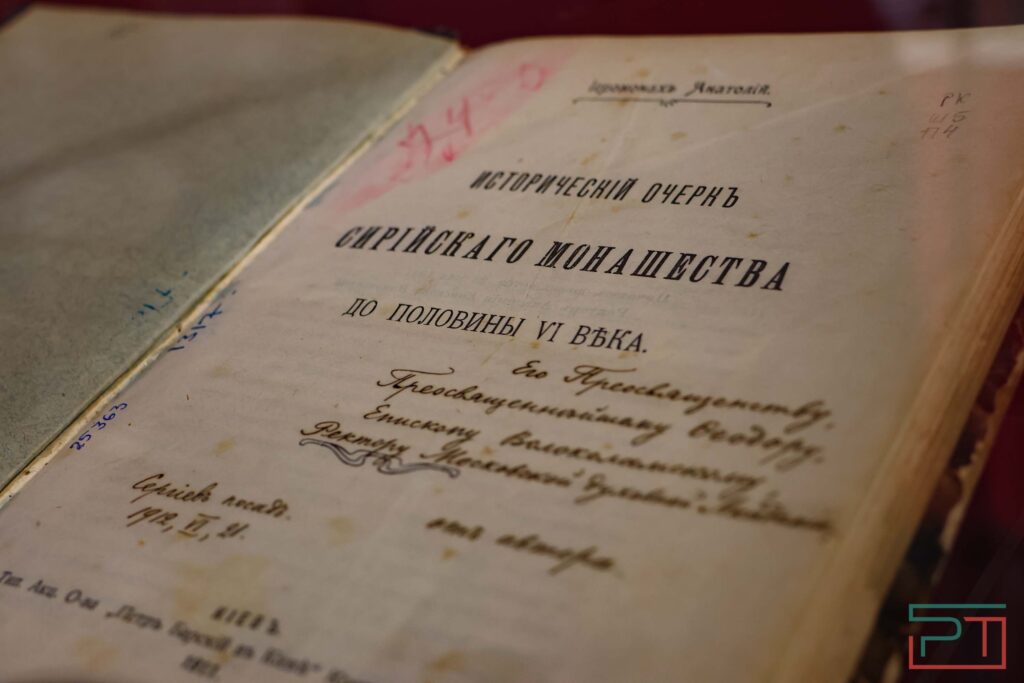 Іеромонахъ Анатолій.
РК
Ш5
П4
ИСТОРИЧЕСКІЙ ОЧЕРКЪ
СИРІЙСКАГО МОНАШЕСТВА
ДО ПОЛОВИНЫ VI ВѢКА.
1317
25363
Его Преосвященству,
Преосвященнѣйшему Ѳеодору,
Епископу Волоколамскому,
Ректору Московской Духовной
отъ автора
Сергіевъ посадъ.
1912, VI, 21.
КІЕВЪ.
Тип. Акц. О-ва „Петръ Барскій въ Кіевѣ"
PT